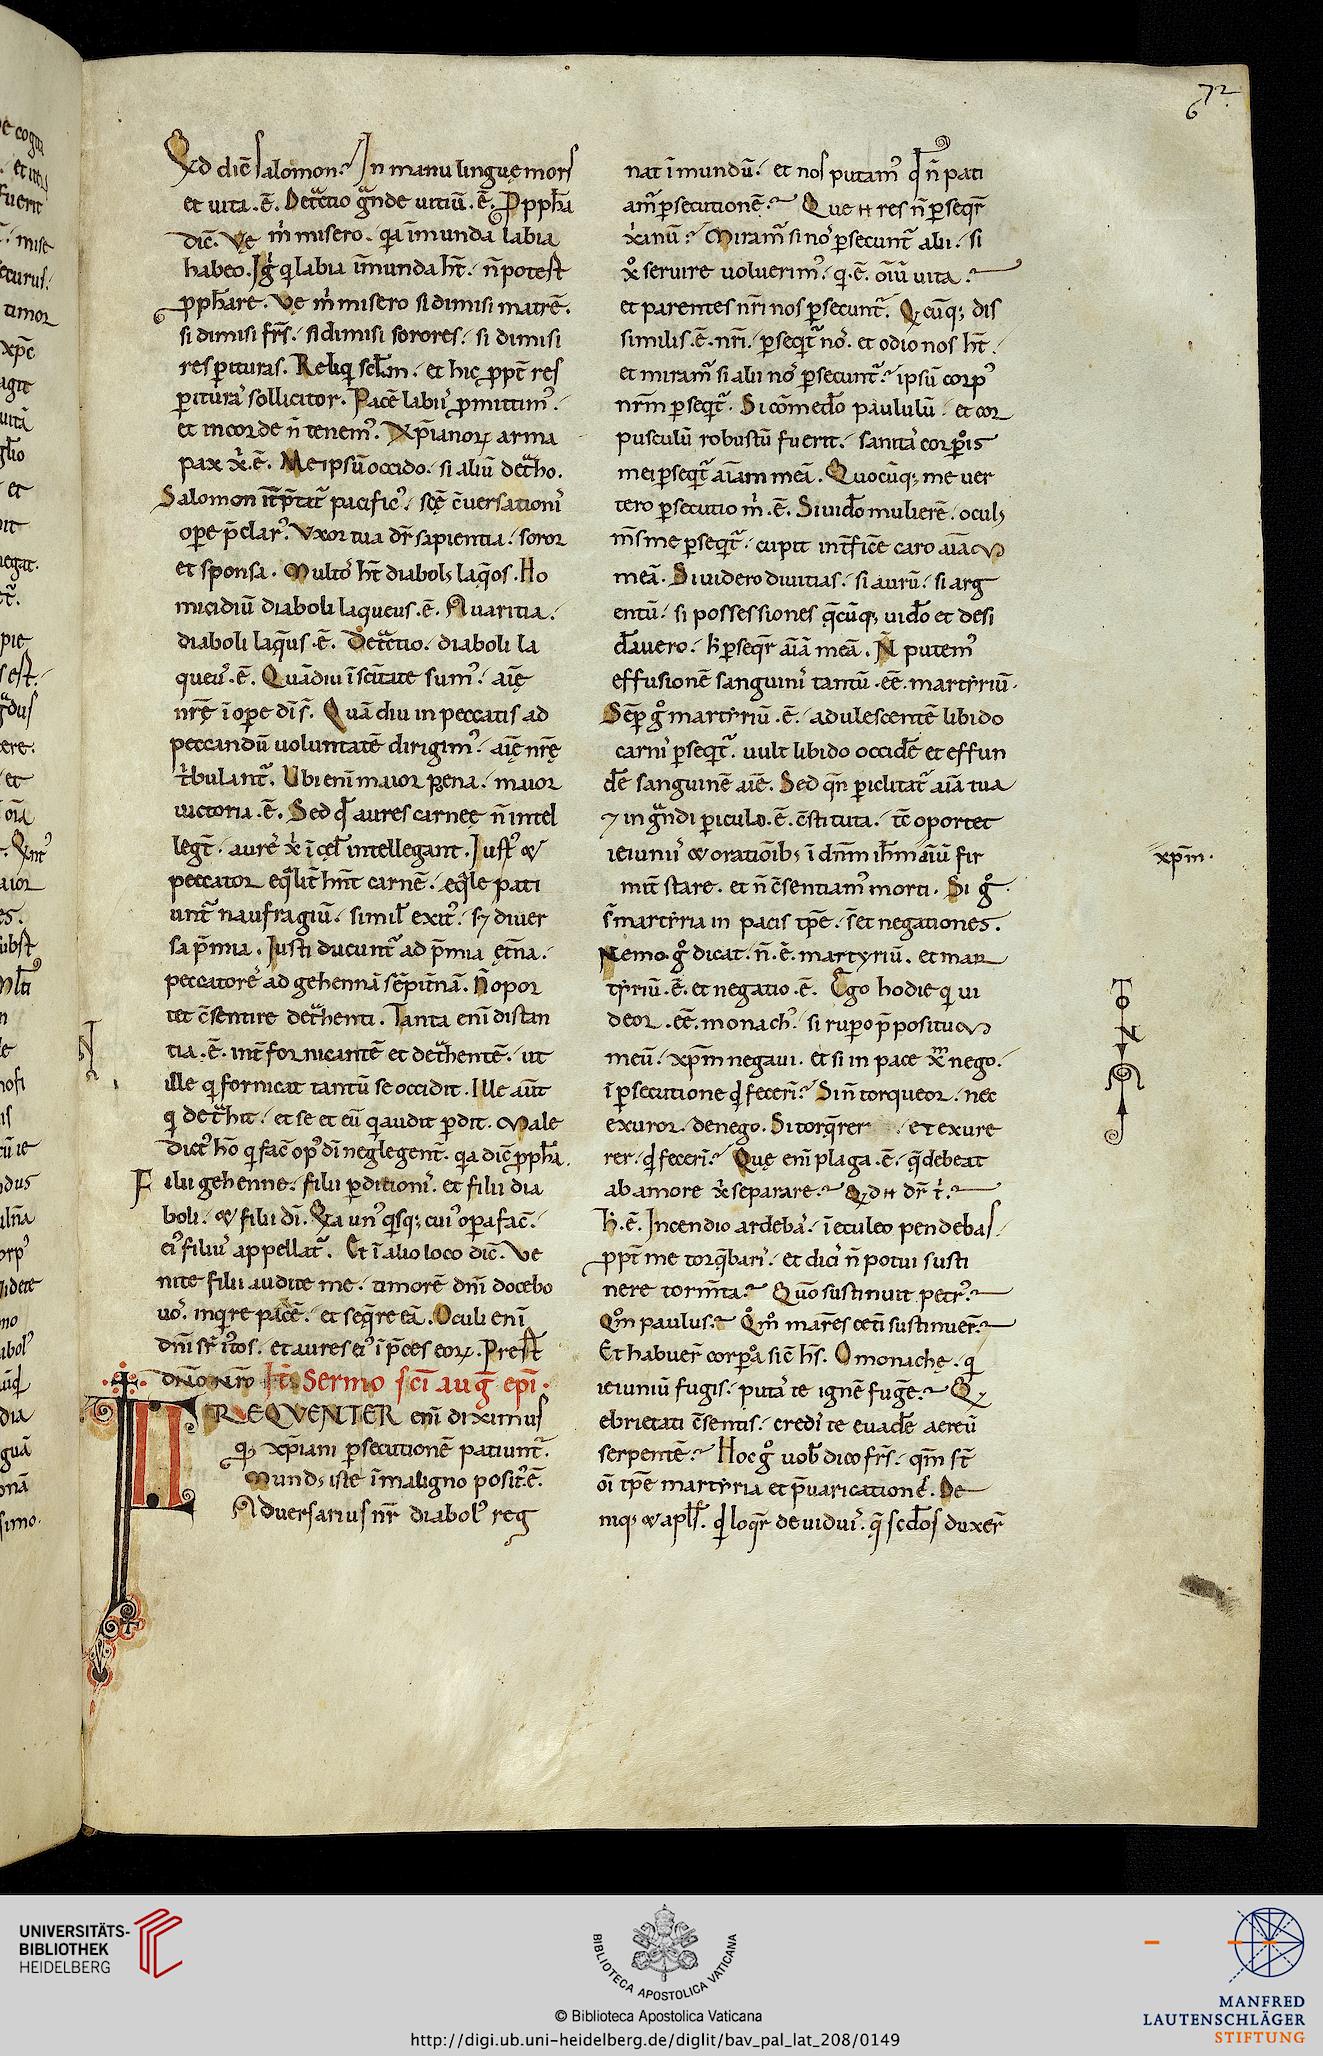 72
6
Qd diē salomon. In manu linguę mors
et uita .ē. Detctio gnde uitiū .ē. Ppph̄a
diē. Vę m̄ misero. qa īmunda labia
habeo. Ig q labia īmunda ht̄. n̄ potest
pph̄are. Ve m̄ misero si dimisi matrē.
si dimisi frs̄. si dimisi sorores. si dimisi
res pituras. Reliq sclm. et hic ppt̄ res
pitura sollicitor. Pacē labiis pmittim.
et in corde n̄ tenem. Xp̄ianoꝝ arma
pax x .ē. Me ipsū occido. si aliū detho.
Salomon pacific. sce ̄cuersationi
ope p̄clar. Vxor tua dr̄ sapientia. soror
et sponsa. Multo ht̄ diabols laqos. Ho
micidiū diaboli laqueus .ē. Auaritia.
diaboli laqus .ē. Detctio. diaboli la
queu .ē. Quādiu ī scitate sum. aię
nrę ī ope di s̄. Quā diu in peccatis ad
peccandū uoluntatē dirigim. aię nrę
tbulant. Ubi enī maior pena. maior
uictoria .ē. Sed qd aures carnee n̄ intel
legt̄. aure x ī cel intellegant. Iust &
peccator eqlit hnt carnē. eqle pati
unt naufragiū. simil exit. s; diuer
sa p̄mia. Iusti ducunt ad p̄mia ętna.
peccatore ad gehennā sēpitnā. N̄ opor
tet ̄csentire dethenti. Tanta enī distan
tia .ē. int fornicantē et dethentē. ut
ille q fornicat tantū se occidit. Ille aūt
q dethit. et se et eū q audit pdit. Male
dict hō q facē op dī neglegent. qa diē pph̄a.
Filii gehenne. filii pditioni. et filii dia
boli. & filii dī. Qa un qsq; cui opa facē.
ei filiu appellat. Et ī alio loco diē. Ve
nite filii audite me. timorē dn̄i docebo
uo. inqre pacē. et seqre eā. Oculi enī
dn̄i sr ītos. et aures ei ī p̄ces eoꝝ. Prest
dn̄o nr̄o It Sermo sc̄i aug̅ ep̄i.
FREQVENTER enī diximus
q xp̄iani psecutionē patiunt.
Mund; iste ī maligno posit ē.
Aduersarius nr̄ diabol reg
nat ī mundū. et nos putam qd n̄ pati
am psecutionē. Que H res n̄ pseqr
x̄ianū. Miram si no psecunt alii. si
xo seruire uoluerim. q .ē. oīū uita.
et parentes nr̄i nos psecunt. Qcūq; dis
similis .ē. nr̄i. pseqt no. et odio nos ht̄.
et miram si alii no psecunt. ipsū corp
nr̄m pseqt. Si cōmedo paululū. et cor
pusculū robustū fuerit. sanita corpois
mei pseqt aīam meā. Quocūq; me uer
tero psecutio m .ē. Si uido mulierē. ocul;
m̄s me pseqt. cupit intficē caro aīā
meā. Si uidero diuitias. si aurū. si arg
entū. si possessiones qcūq; uido et desi
dauero. h pseqr aīā meā. N̄ putem
effusionē sanguini tantū .eē. martyriū.
Sēp go martyriū .ē. adulescentē libido
carni pseqt. uult libido occidē et effun
dē sanguinē aiē. Sed qn piclitat aīā tua
7 in gndi piculo .ē. ̄cstituta. tē oportet
ieiunii & oratioīb; ī dn̄m ih̄m aīū fir
mit stare. et n̄ ̄csentiam morti. Si go
s̄ martyria in pacis tpe. s̄ et negationes.
Nemo go dicat. n̄ .ē. martyriū. et mar
tyriū .ē. et negatio .ē. Ego hodie q ui
deor .eē. monach. si rupo ppositu
meū. xp̄m negaui. et si in pace x̄m nego.
ī psecutione qd feceri. Si n̄ torqueor. nec
exuror. denego. Si torqrer et exure
rer. qd feceri. Quę enī plaga .ē. q debeat
ab amore x̄ separare. Qd H dr̄ t.
h .ē. Incendio ardeba. ī eculeo pendebas.
ppt me torqbari. et dici n̄ potui susti
nere tormta. Quō sustinuit petr.
Qm paulus. Qm mares ceti sustinuer.
Et habuer corpoa sic h̄s. O monache. q
ieiuniū fugis. puta te ignē fugē. Q
ebrietati ̄csentis. credi te euadē aereū
serpentē. Hoc go uob dico frs̄. qm st̄
oī tpe martyria et p̄uaricatione. De
niq; & apls. qd loqr de uidui. q scdos duxer
xp̄m.